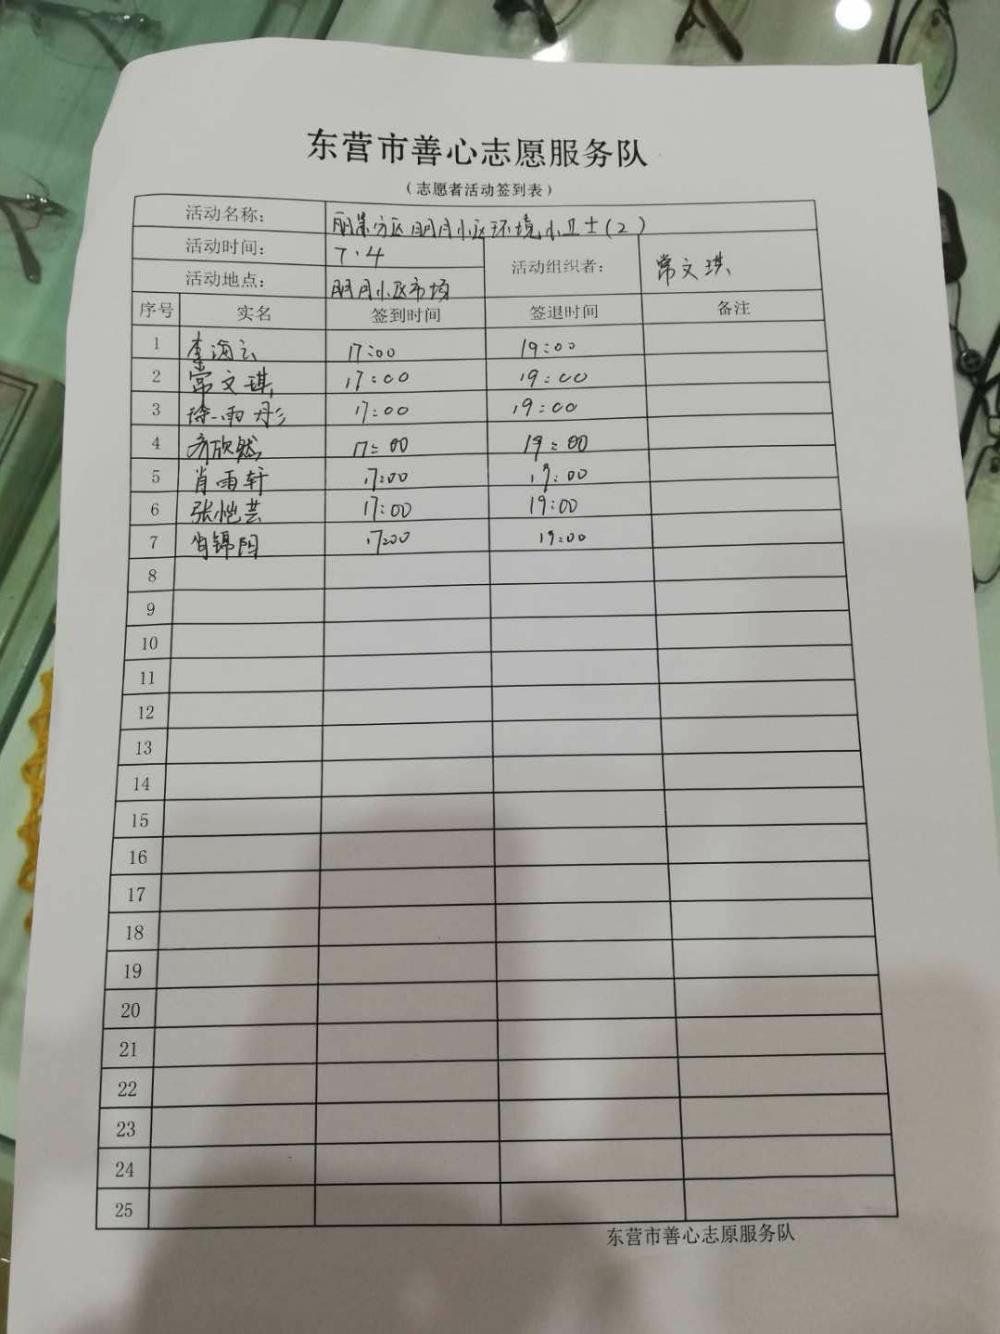 东营市善心志愿服务队
（志愿者活动签到表）
活动名称： 丽景方区明月小区环境小卫士(2)
活动时间： 7.4
活动组织者： 常文琪
活动地点： 明月小区市场
序号 实名 签到时间 签退时间 备注
1 李海云 17:00 19:00
2 常文琪 17:00 19:00
3 徐一雨彤 17:00 19:00
4 欣然 17:00 19:00
5 肖雨轩 17:00 19:00
6 张恺芸 17:00 19:00
7 肖锦阳 17:00 19:00
8
9
10
11
12
13
14
15
16
17
18
19
20
21
22
23
24
25
东营市善心志原服务队